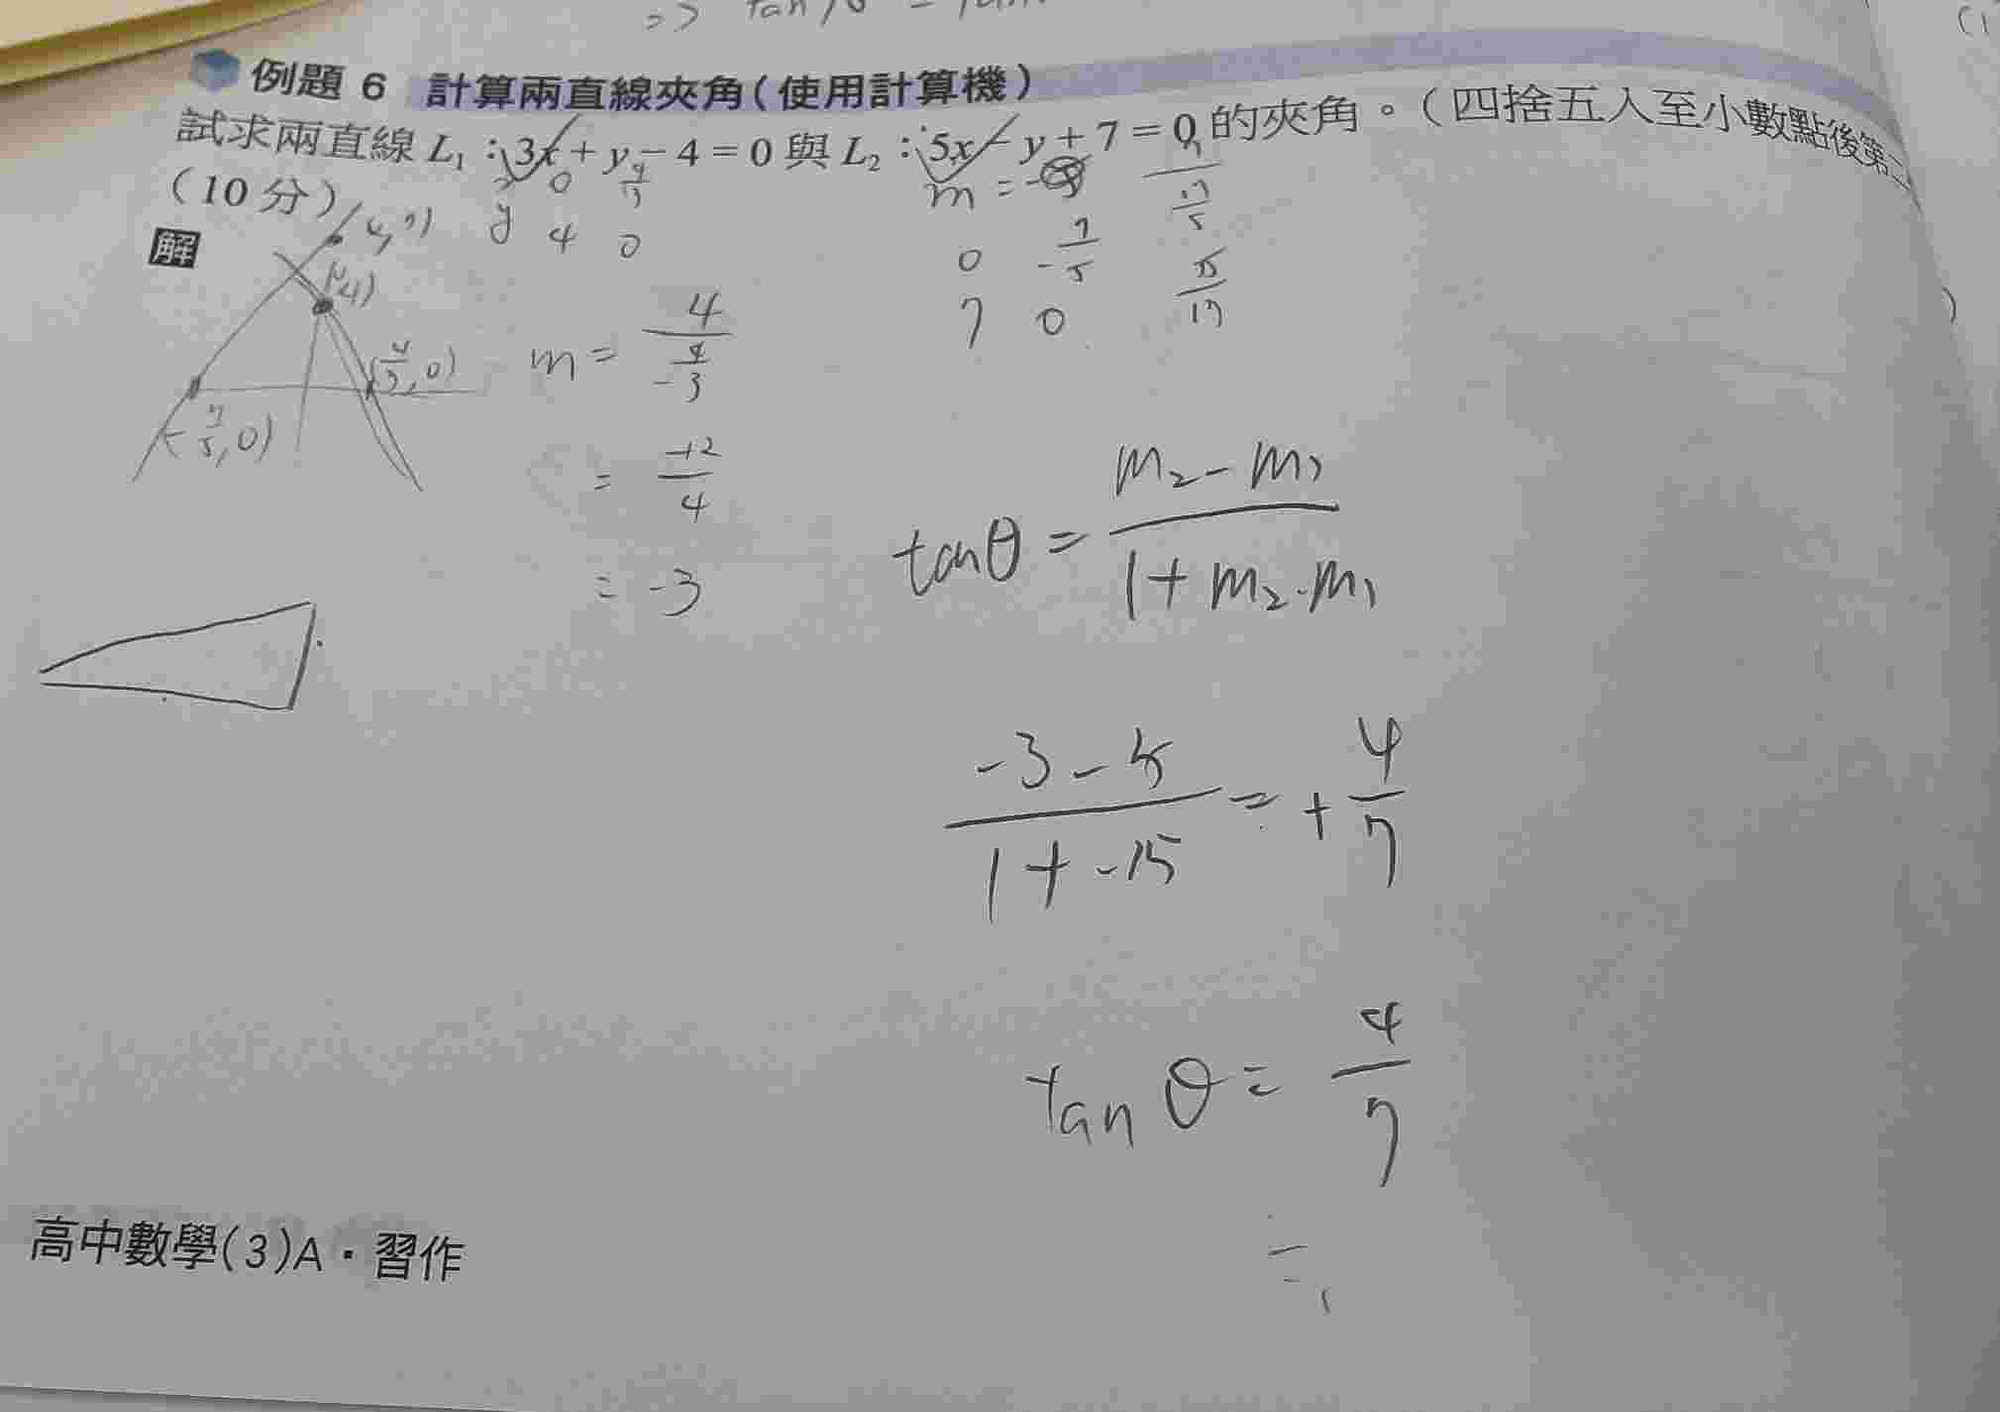 => tan
例題 6 計算兩直線夾角(使用計算機)
試求兩直線 L₁:3x + y - 4 = 0 與 L₂:5x - y + 7 = 0 的夾角。(四捨五入至小數點後第二
(10 分)
解
y 4 0
m =
0 -7/5
7 0
(4/3, 0)
(-7/5, 0)
m = 4/(-4/3)
= -12/4
= -3
tanθ = (m₂ - m₁)/(1 + m₂·m₁)
(-3 - 5)/(1 + -15) = + 4/7
tan θ = 4/7
=
高中數學(3)A・習作